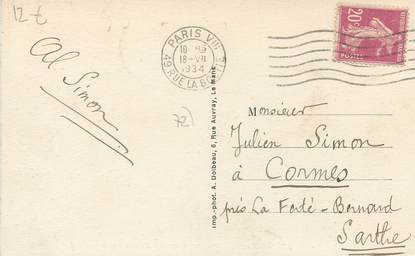 12 €
Al Simon
PARIS VIII
18 - VII
1934
49 RUE LA BOETIE
20c
POSTES
72
Imp.-phot. A. Dolbeau, 6, Rue Auvray, Le Mans
Monsieur
Julien Simon
à Cormes
près La Ferté-Bernard
Sarthe